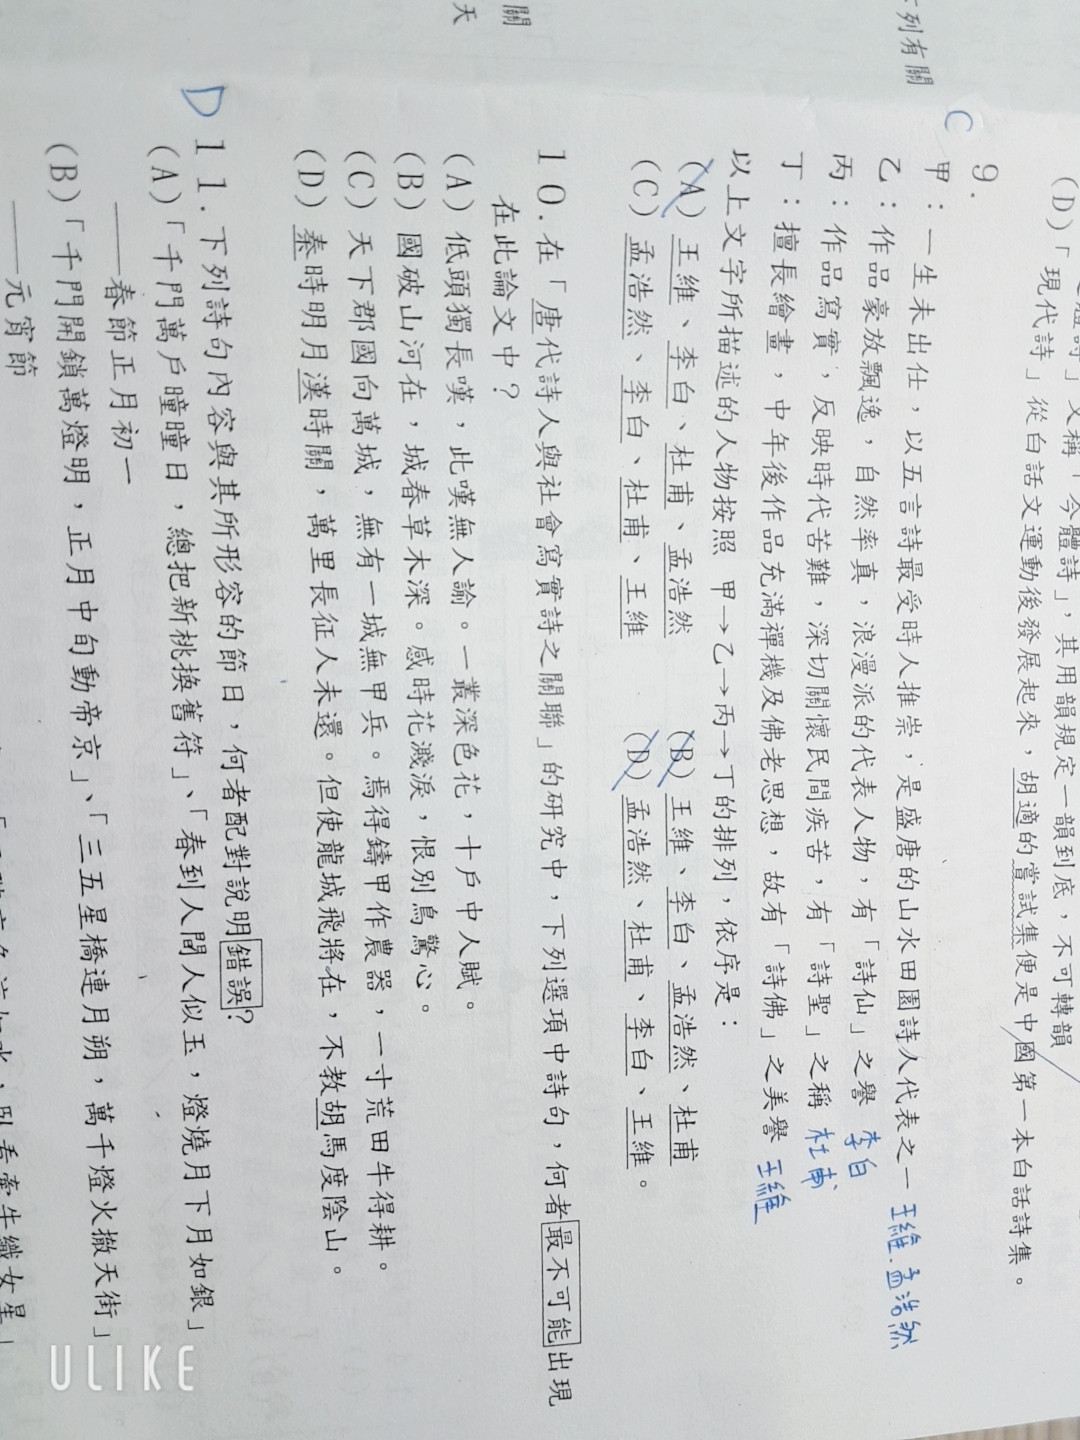 下列有關
關
天
(D)「現代詩」從白話文運動後發展起來，胡適的嘗試集便是中國第一本白話詩集。
C
9.
甲：一生未出仕，以五言詩最受時人推崇，是盛唐的山水田園詩人代表之一 王維.孟浩然
乙：作品豪放飄逸，自然率真，浪漫派的代表人物，有「詩仙」之譽 李白
丙：作品寫實，反映時代苦難，深切關懷民間疾苦，有「詩聖」之稱 杜甫
丁：擅長繪畫，中年後作品充滿禪機及佛老思想，故有「詩佛」之美譽 王維
以上文字所描述的人物按照 甲→乙→丙→丁的排列，依序是：
(A) 王維、李白、杜甫、孟浩然 (B) 王維、李白、孟浩然、杜甫
(C) 孟浩然、李白、杜甫、王維 (D) 孟浩然、杜甫、李白、王維。
10.在「唐代詩人與社會寫實詩之關聯」的研究中，下列選項中詩句，何者最不可能出現
在此論文中？
(A) 低頭獨長嘆，此嘆無人諭。一叢深色花，十戶中人賦。
(B) 國破山河在，城春草木深。感時花濺淚，恨別鳥驚心。
(C) 天下郡國向萬城，無有一城無甲兵。焉得鑄甲作農器，一寸荒田牛得耕。
(D) 秦時明月漢時關，萬里長征人未還。但使龍城飛將在，不教胡馬度陰山。
D 11.下列詩句內容與其所形容的節日，何者配對說明錯誤？
(A)「千門萬戶曈曈日，總把新桃換舊符」、「春到人間人似玉，燈燒月下月如銀」
——春節正月初一
(B)「千門開鎖萬燈明，正月中旬動帝京」、「三五星橋連月朔，萬千燈火撤天街」
——元宵節
ULIKE